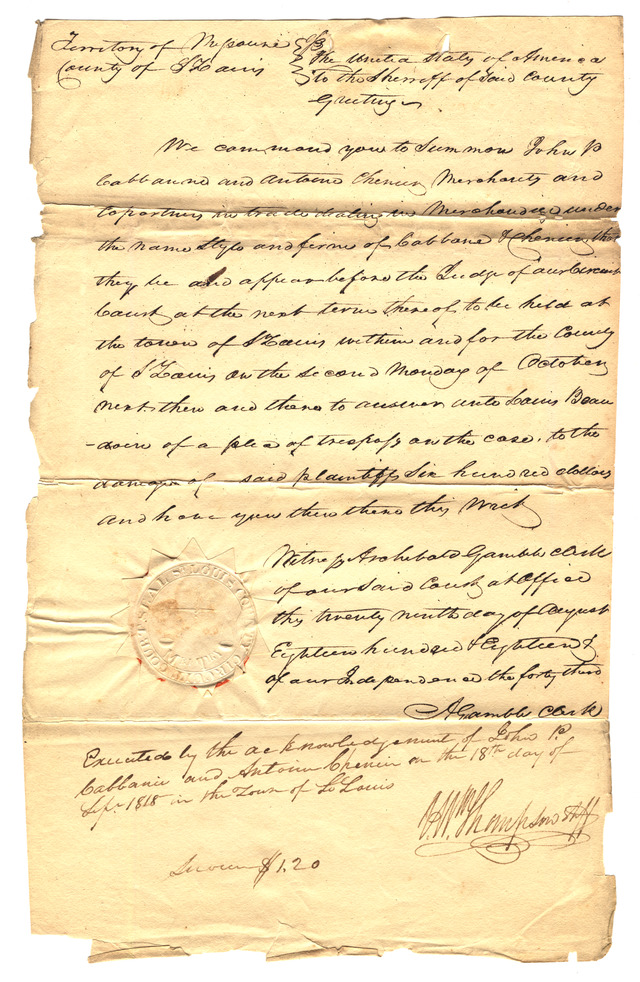 Territory of Missouri
County of St Louis
The United States of America
to the Sherroff of said County
Greeting
We command you to Summon John P
Cabbanne and Antoine Chenier Merchants and
Copartners in trade dealing in Merchandize under
the name Style and firme of Cabbane & Chenier, that
they be and appear before the Judge of our Circuit
Court at the next term thereof to be held at
the town of St Louis within and for the County
of St Louis on the second Monday of October
next, then and there to answer unto Louis Beau
-doin of a plea of trespass on the case, to the
damages of said plaintiff Six hundred dollars
and have you then there this Writ
Witness Archibald Gamble clerk
of our said Court at Office
this twenty ninth day of August
Eighteen hundred & Eighteen &
of our Independence the forty third
A Gamble Clerk
ST LOUIS COUNTY CIRCUIT COURT SEAL
Executed by the acknowledgement of John P.
Cabbanie and Antoine Chenier on the 18th day of
Sept. 1818 in the Town of St Louis
Wm Thompson Shff
$1.20